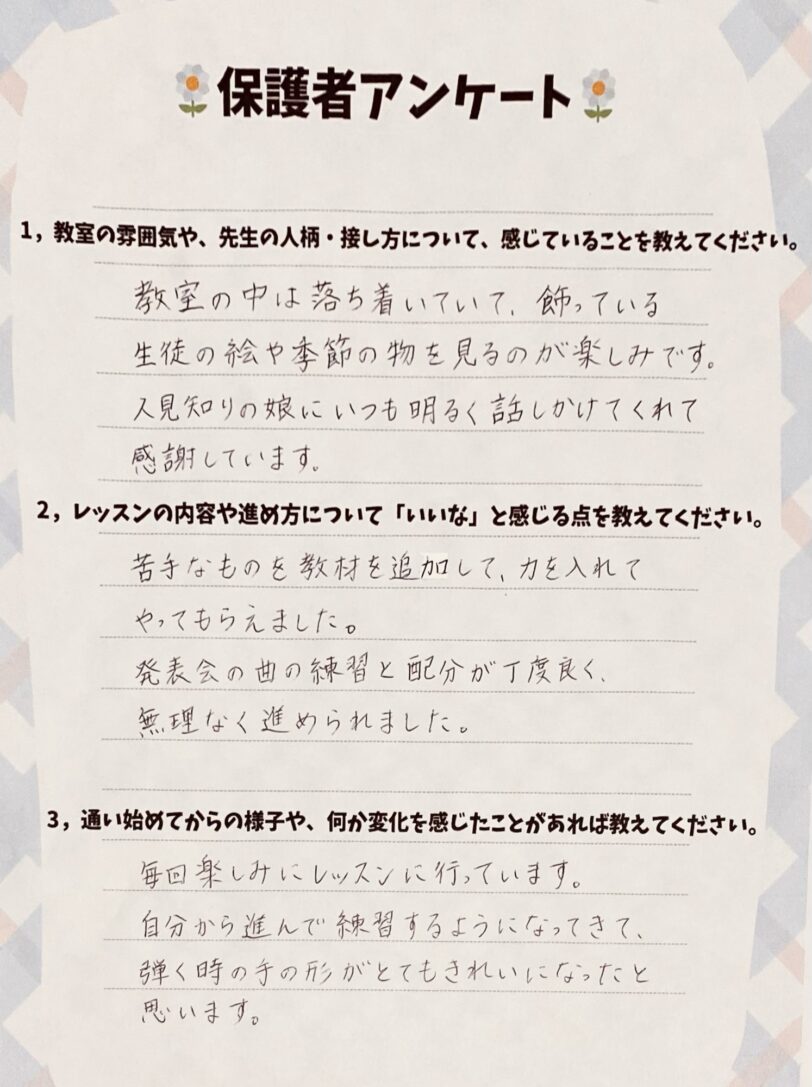 保護者アンケート
1，教室の雰囲気や、先生の人柄・接し方について、感じていることを教えてください。
教室の中は落ち着いていて、飾っている
生徒の絵や季節の物を見るのが楽しみです。
人見知りの娘にいつも明るく話しかけてくれて
感謝しています。
2，レッスンの内容や進め方について「いいな」と感じる点を教えてください。
苦手なものを教材を追加して、力を入れて
やってもらえました。
発表会の曲の練習と配分が丁度良く、
無理なく進められました。
3，通い始めてからの様子や、何か変化を感じたことがあれば教えてください。
毎回楽しみにレッスンに行っています。
自分から進んで練習するようになってきて、
弾く時の手の形がとてもきれいになったと
思います。